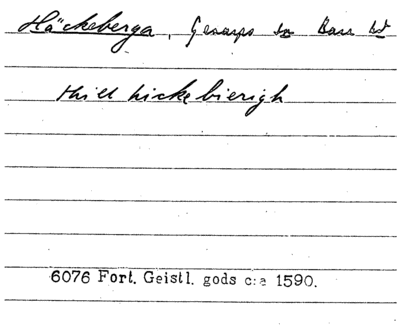 Häckeberga, Genarps sn Bara hd
thill hickebierigh
6076 Fort. Geistl. gods c:a 1590.